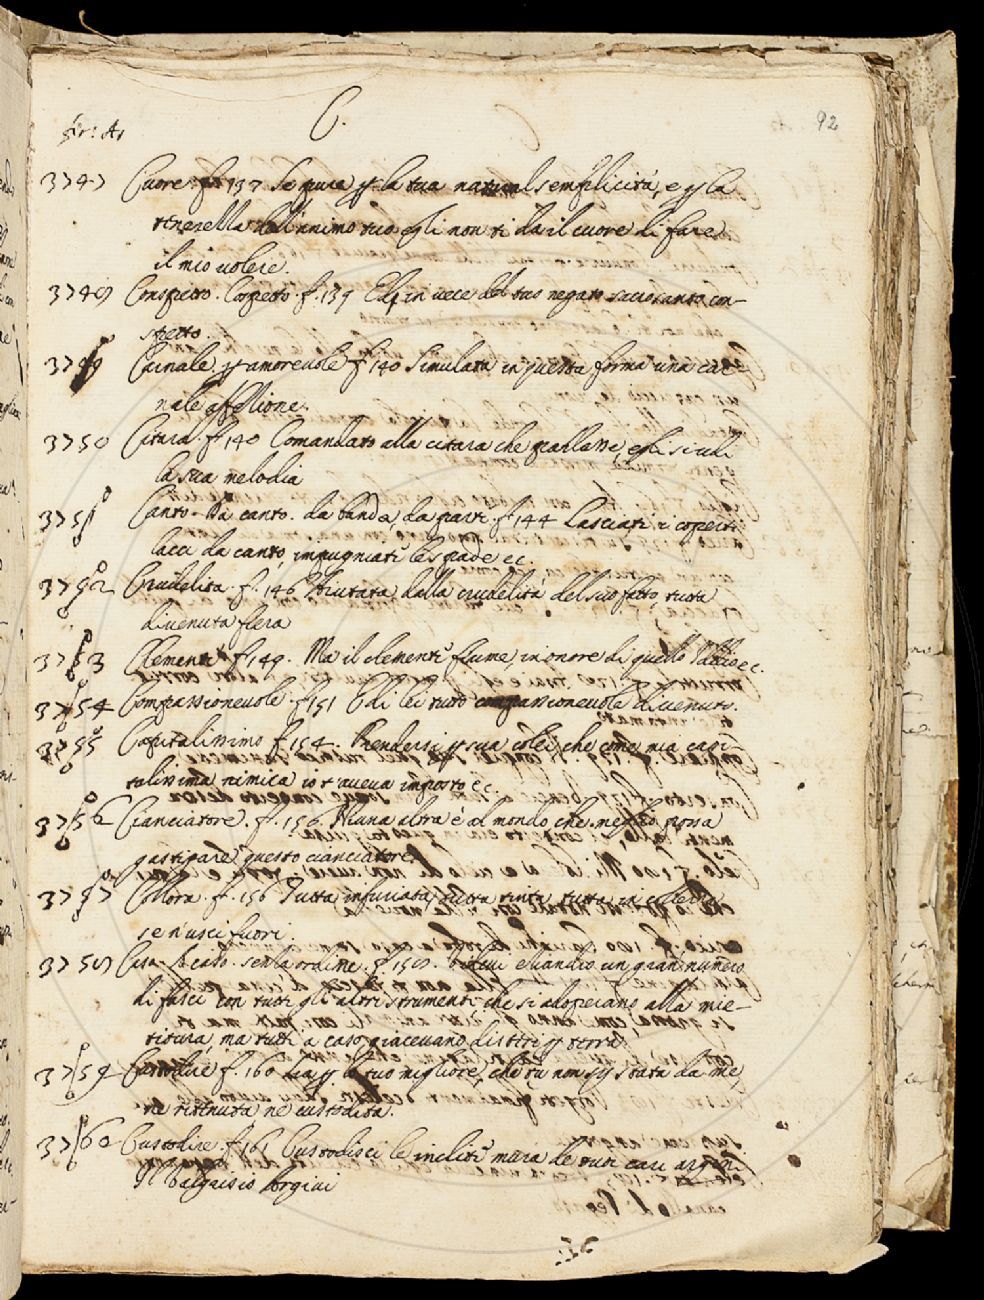 C.
92
3747 Cuore. f. 137 Se pura p la tua natural semplicità, e p la
tenerella dell'animo tuo egli non ti dà il cuore di fare
il mio volere.
3748 Conspetto. Cospetto. f. 139 Ed in vece del tuo negato sacrosanto con-
spetto.
3749 Carnale. p amorevole f. 140 Simulata in questa forma una car-
nale affelione.
3750 Citara. f. 140 Comandato alla citara che parlasse, egli si udì
la sua melodia
3751 Canto. Da canto. da banda, da parti. f. 144 Lasciati i coperti
lacci da canto, impugniati le spade ec.
3752 Crudelità. f. 146 Aiutata dalla crudelità del suo fatto, tutta
divenuta fiera
3753 Clementi f. 149. Ma il clementi fiume, in onore di quello Iddio ec.
3754 Compassionevole. f. 151 E di lei tutto compassionevole divenuto.
3755 Capitalissimo f. 154. Prendersi p sua colei, che come mia capi-
talissima nimica io t'aueua imposto ec.
3756 Cianciatore. f. 156. Niuna altra è al mondo che meglio possa
gastigare questo cianciatore
3757 Collora. f. 156 Tutta infuriata, tutta tinta, tutta in collora
se n'uscì fuori.
3758 Caso. A caso. senza ordine. f. 158. eziandio un gran numero
di fasci con tutti gli altri strumenti che si adoperano alla mie-
titura, ma tutti a caso giacevano distesi p terra.
3759 Custodire f. 160 Sia p lo tuo migliore, che tu non sij stata da me
ne ritenuta, ne custodita.
3760 Custodire. f. 165 Custodisci le incliti mura de tuoi cari argivi